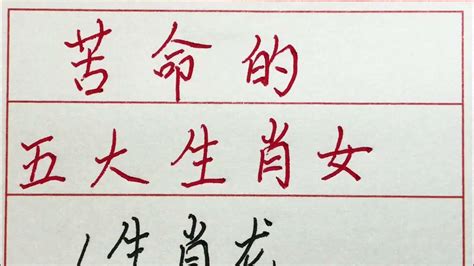 苦命的
五大生肖女
1生肖龙